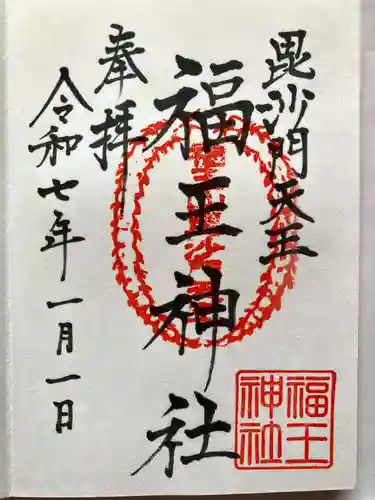 毘沙門天王
奉拝
福王神社
令和七年一月一日
福王
神社